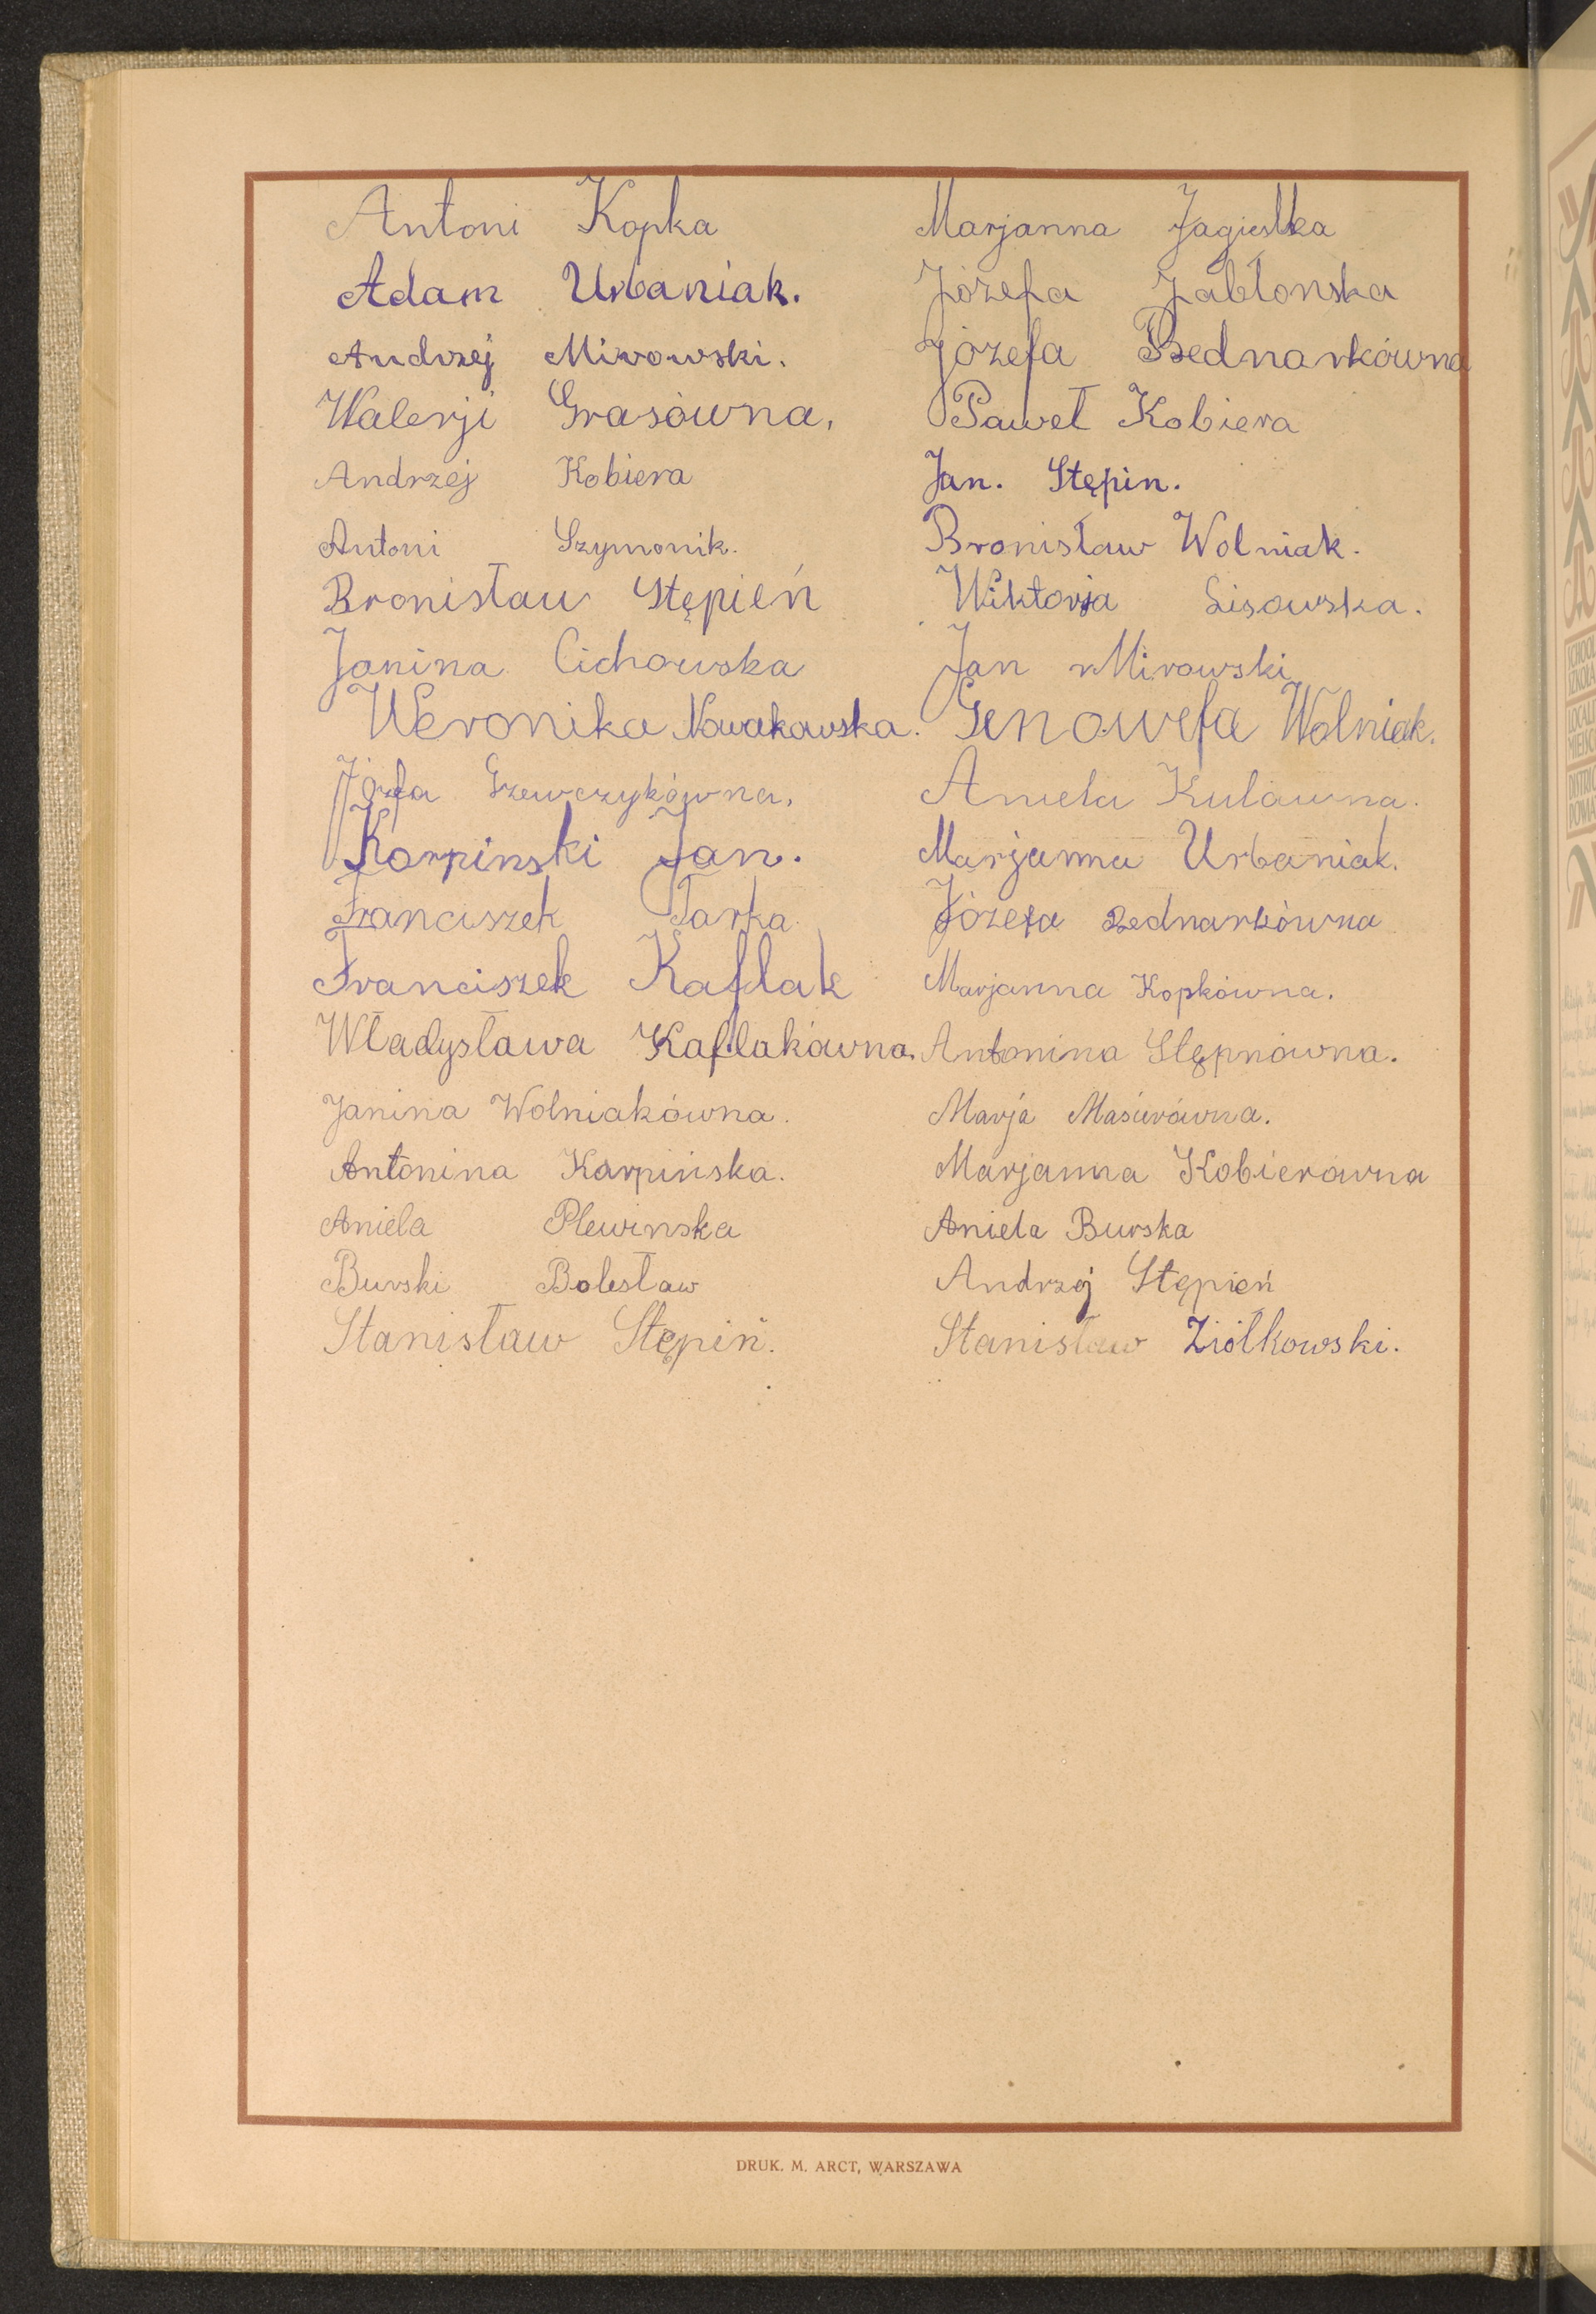 Antoni Kopka
Adam Urbaniak.
Andrzej Mirowski.
Walerji Grasówna,
Andrzej Kobiera
Antoni Szymonik.
Bronisław Stępień
Janina Cichowska
Weronika Nowakowska.
Józefa Szewczykówna,
Karpinski Jan.
Franciszek Parka
Franciszek Kaflak
Władysława Kaflakówna.
Janina Wolniakówna.
Antonina Karpińska.
Aniela Plewinska
Burski Bolesław
Stanisław Stępiń.
Marjanna Jagiełka
Józefa Jabłonska
Józefa Bednarkówna
Paweł Kobiera
Jan. Stępin.
Bronisław Wolniak.
Wiktorja Lisowska.
Jan Mirowski
Genowefa Wolniak.
Aniela Kulówna.
Marjanna Urbaniak.
Józefa Bednarkówna
Marjanna Kopkówna.
Antonina Stępnówna.
Marja Masiurówna.
Marjanna Kobierówna
Aniela Burska
Andrzej Stępień
Stanisław Ziółkowski.
DRUK. M. ARCT, WARSZAWA